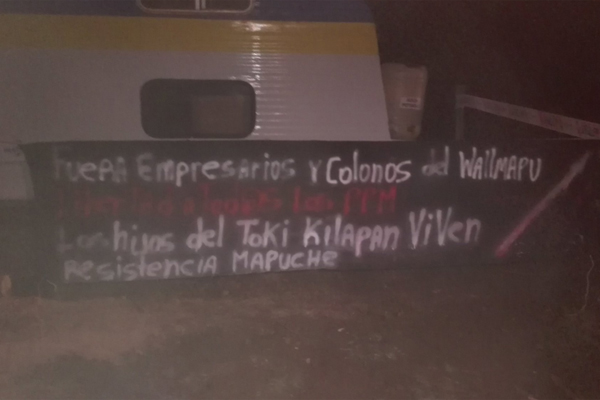 Fuera Empresarios y Colonos del Wallmapu
Libertad a todos Los PPM
Los hijos del Toki Kilapan ViVen
Resistencia MAPUCHE